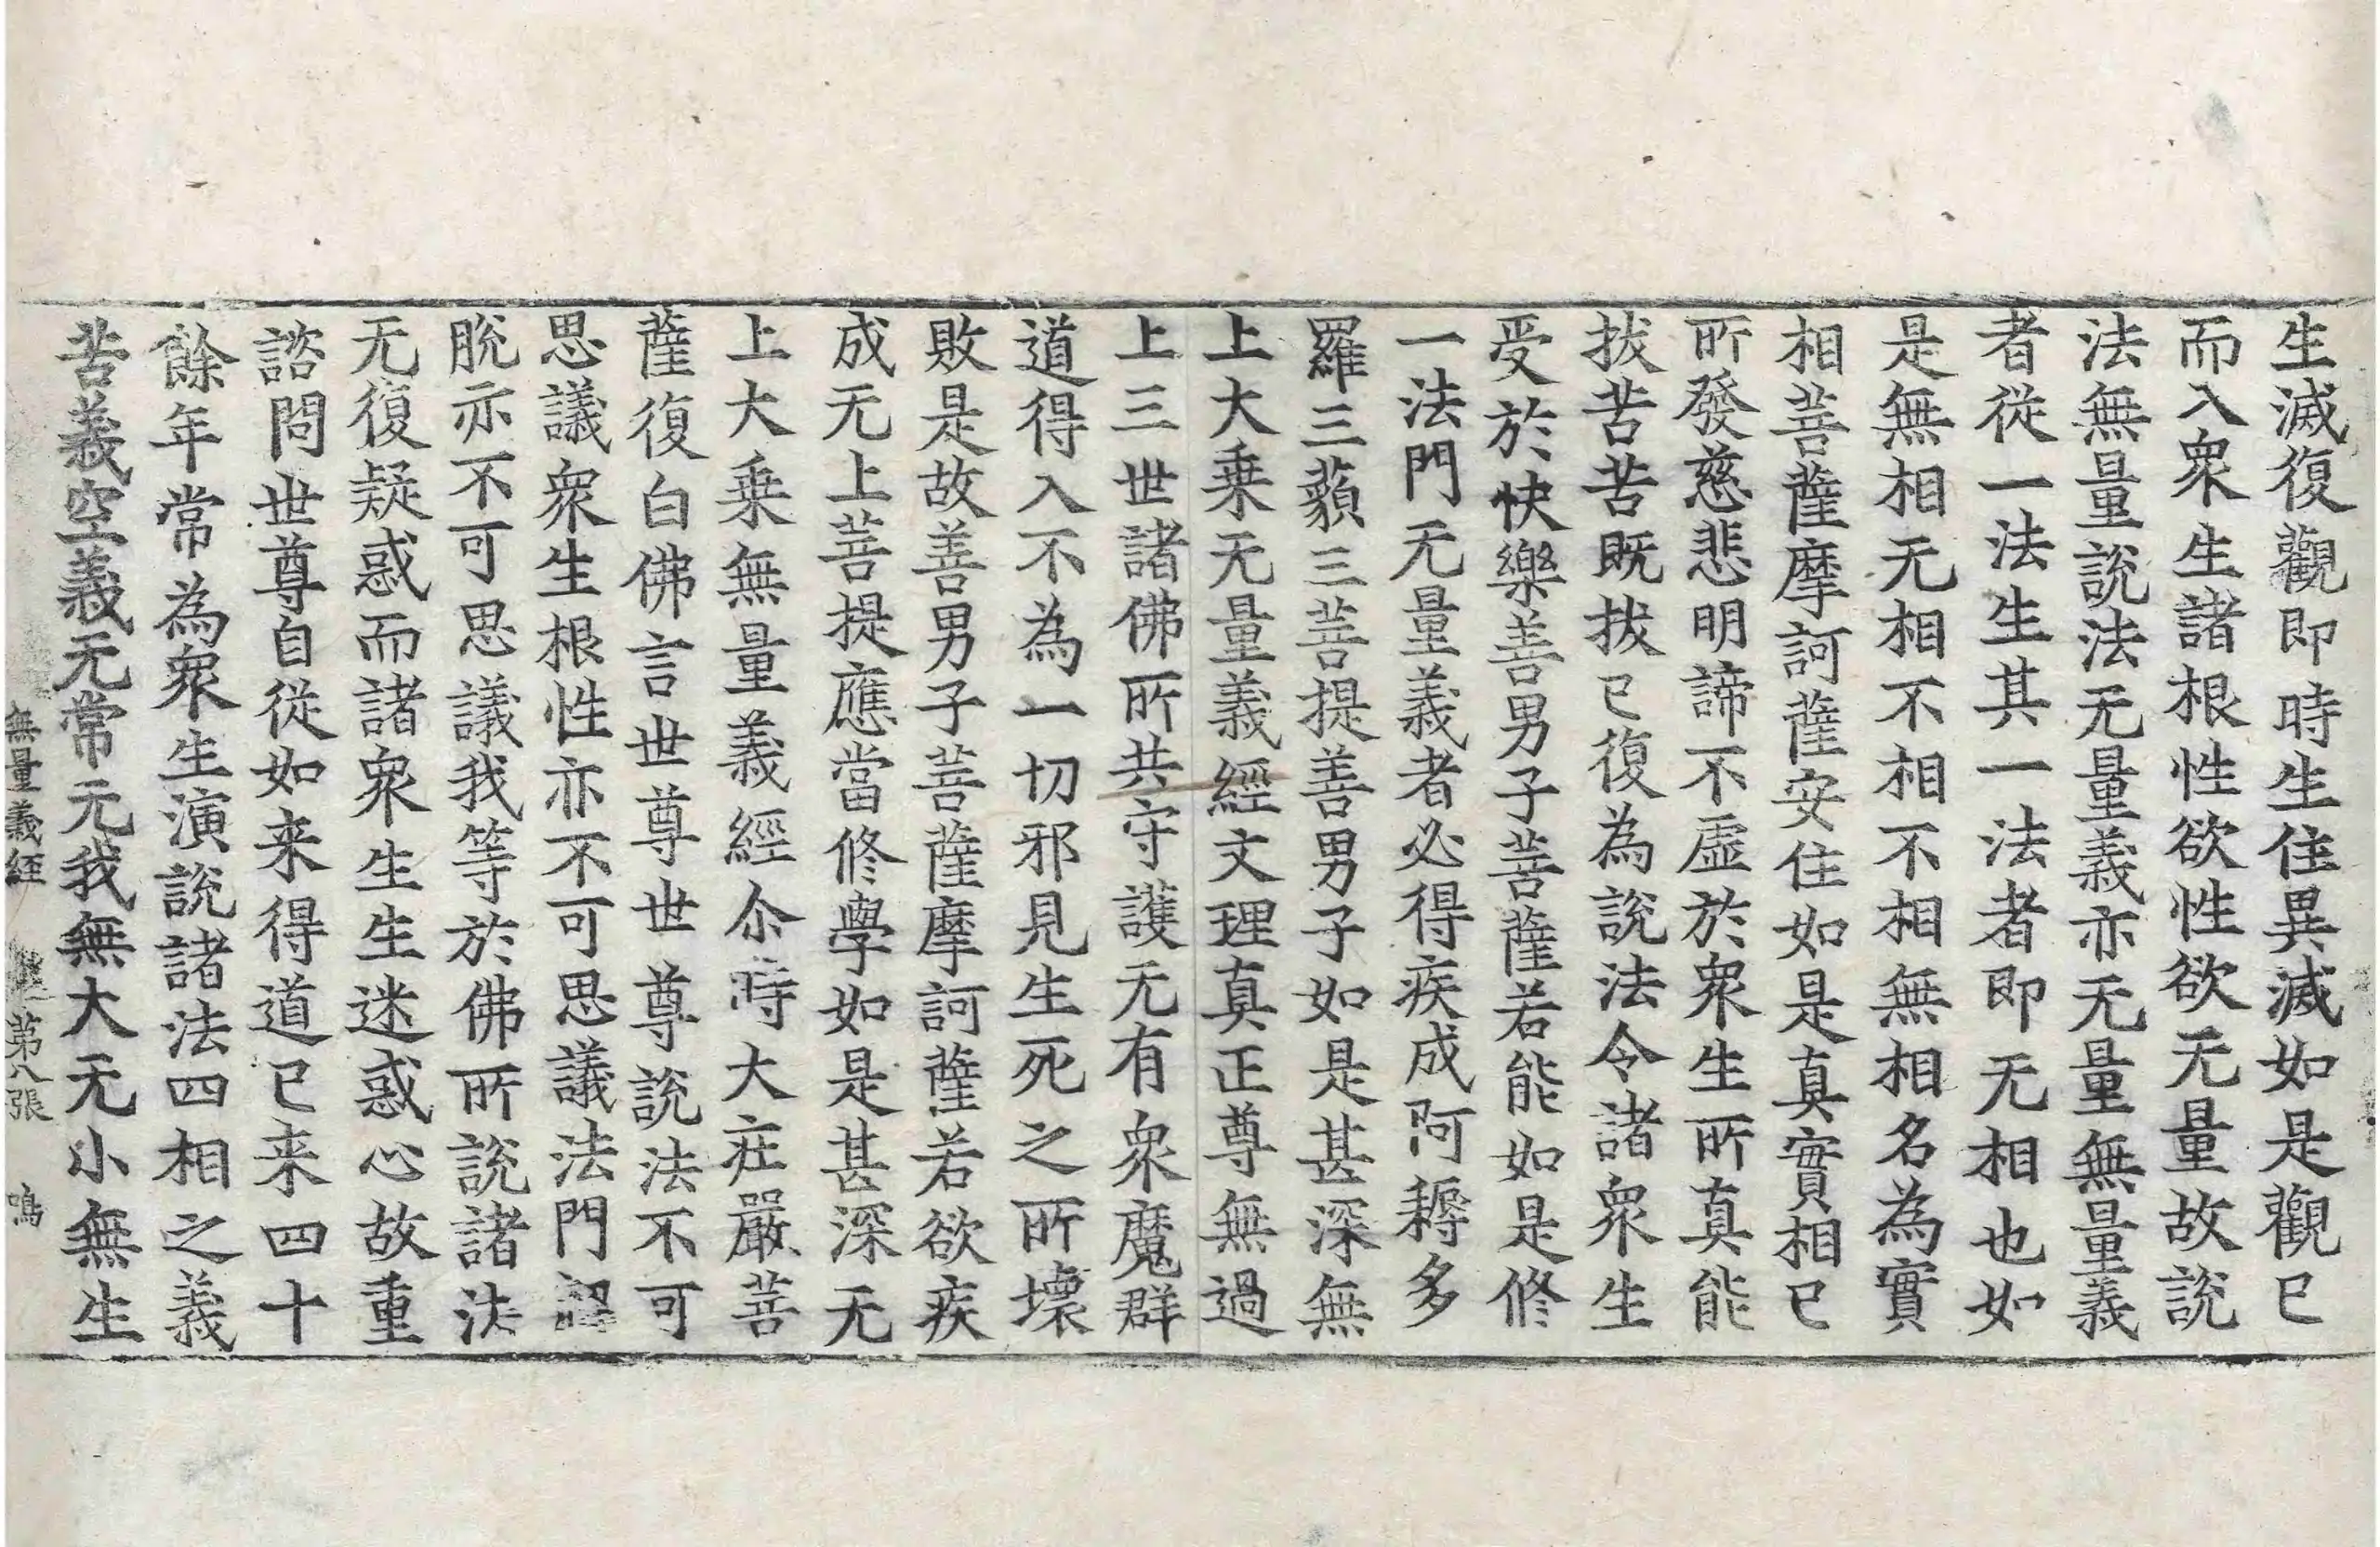 生滅復觀即時生住異滅如是觀已
而入衆生諸根性欲性欲无量故說
法無量說法无量義亦无量無量義
者從一法生其一法者即无相也如
是無相无相不相不相無相名為實
相菩薩摩訶薩安住如是真實相已
所發慈悲明諦不虛於衆生所真能
拔苦苦既拔已復為說法令諸衆生
受於快樂善男子菩薩若能如是修
一法門无量義者必得疾成阿耨多
羅三藐三菩提善男子如是甚深無
上大乗无量義經文理真正尊無過
上三世諸佛所共守護无有衆魔群
道得入不為一切邪見生死之所壞
敗是故善男子菩薩摩訶薩若欲疾
成无上菩提應當修學如是甚深无
上大乗無量義經尒時大莊嚴菩
薩復白佛言世尊世尊說法不可
思議衆生根性亦不可思議法門解
脫亦不可思議我等於佛所說諸法
无復疑惑而諸衆生生迷惑心故重
諮問世尊自從如来得道已来四十
餘年常為衆生演說諸法四相之義
苦義空義无常无我無大无小無生
無量義經 第八張 鳴